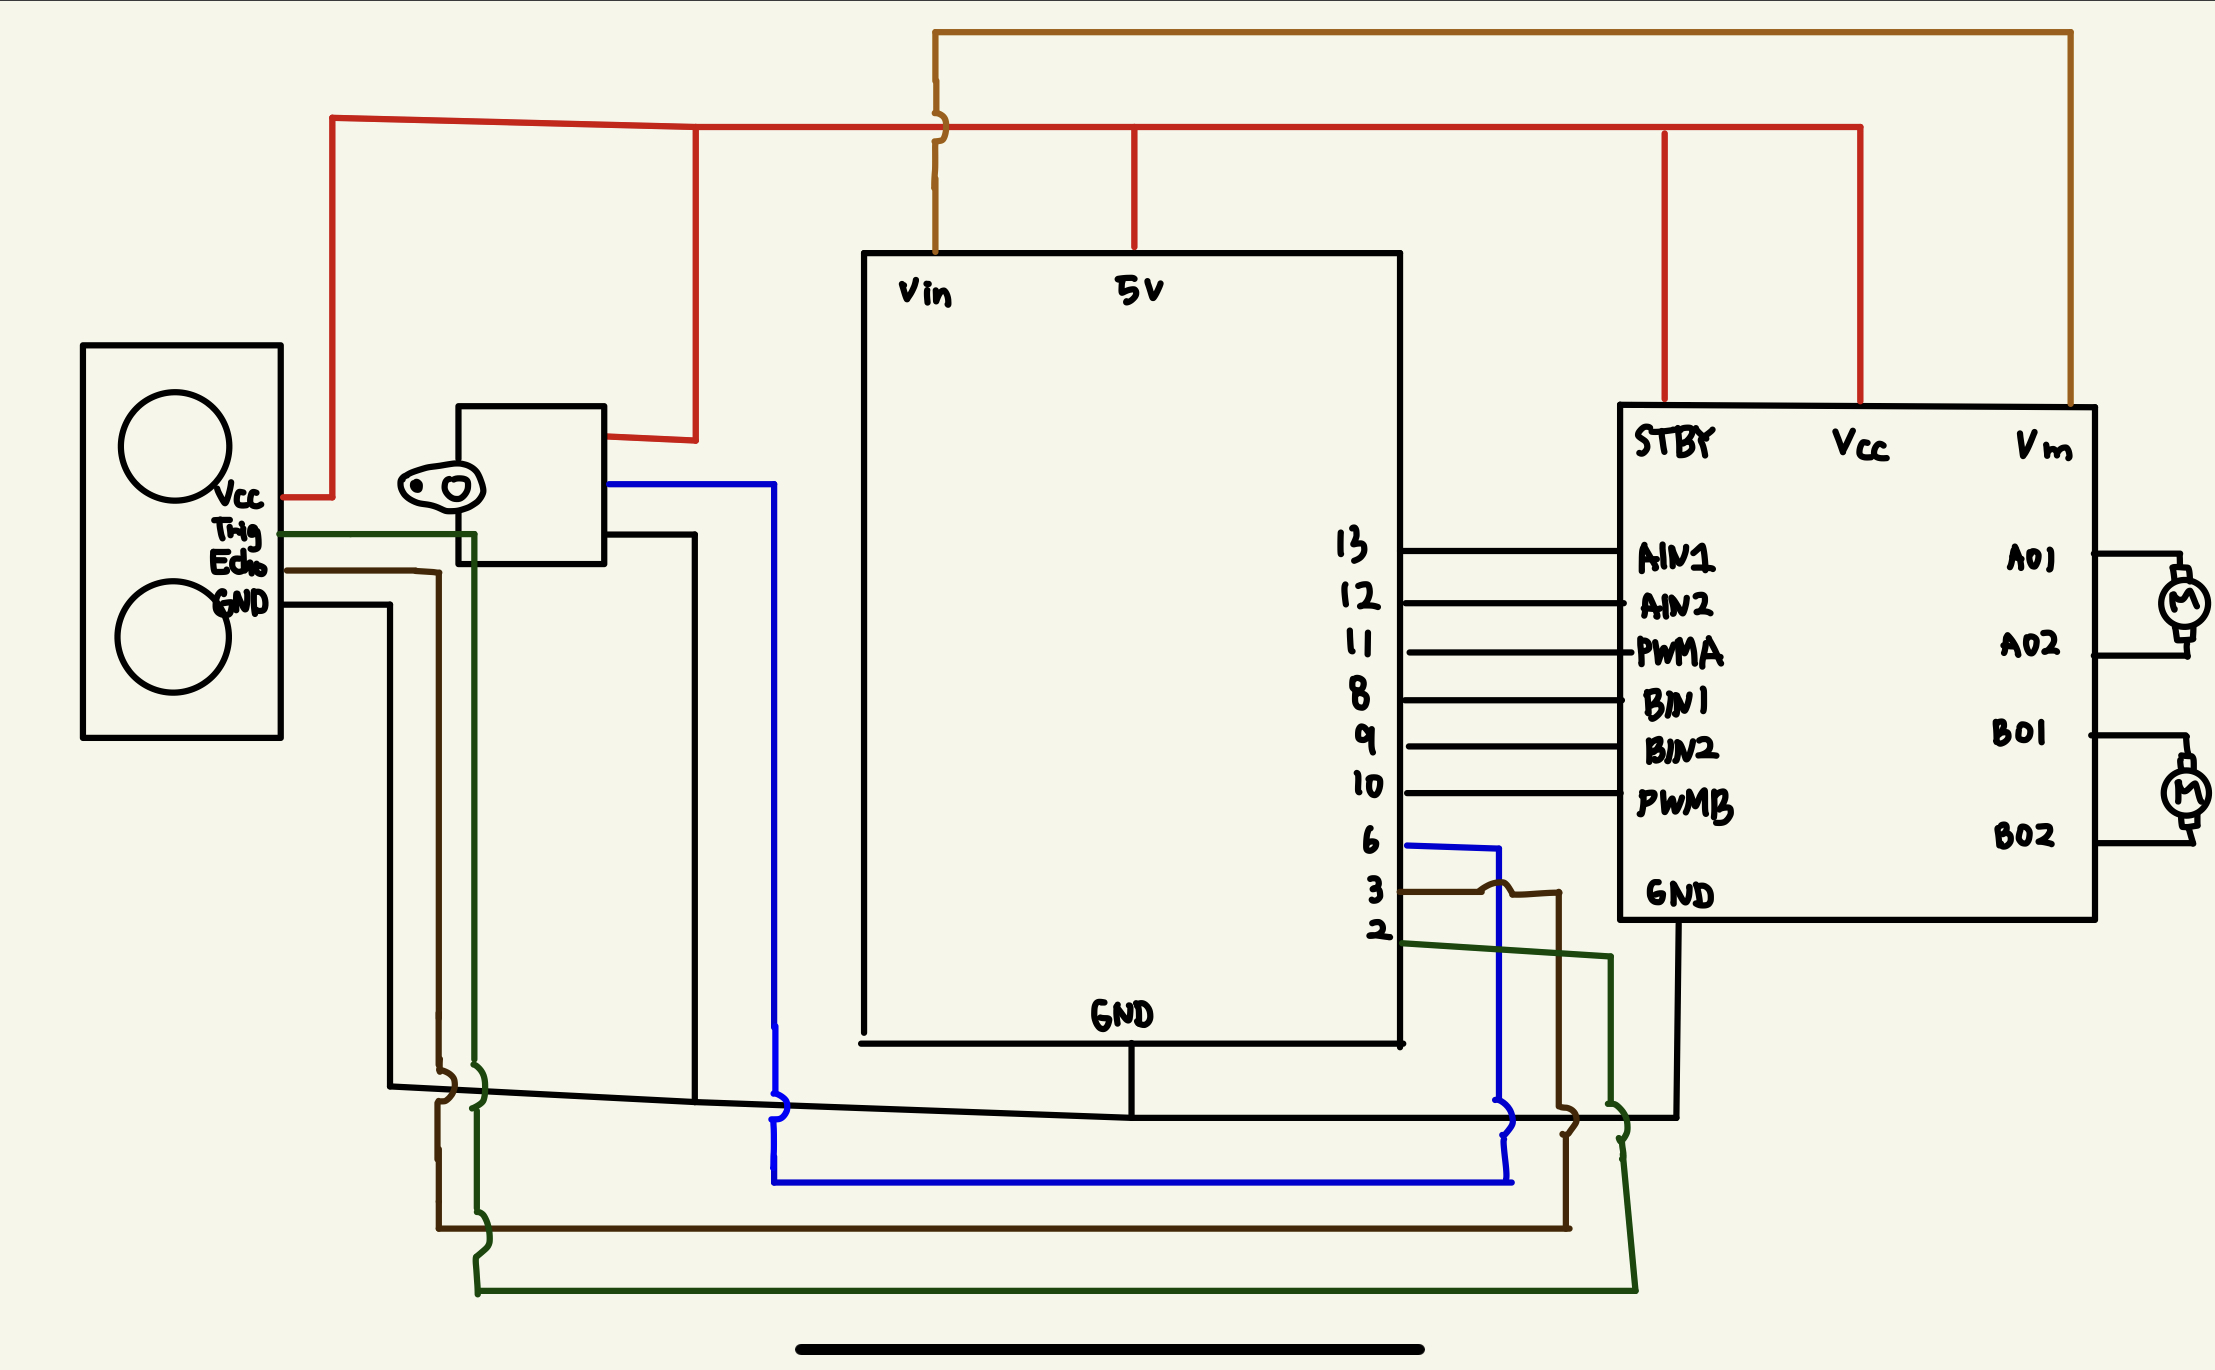 Vin
5V
Vcc
Trig
Echo
GND
13
12
11
8
9
10
6
3
2
GND
STBY
Vcc
Vm
AIN1
AIN2
PWMA
BIN1
BIN2
PWMB
GND
A01
A02
B01
B02
M
M